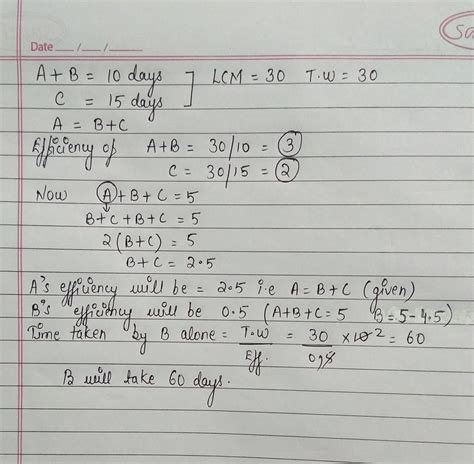 Date __/__/__
A + B = 10 days ] LCM = 30 T.W = 30
C = 15 days
A = B + C
Efficiency of A + B = 30/10 = 3
C = 30/15 = 2
Now A + B + C = 5
B + C + B + C = 5
2(B+C) = 5
B + C = 2.5
A's efficiency will be = 2.5 i.e A = B + C (given)
B's efficiency will be 0.5 (A+B+C = 5 B = 5 - 4.5)
Time taken by B alone = T.W/Eff. = 30/0.5 × 10 2 = 60
B will take 60 days.